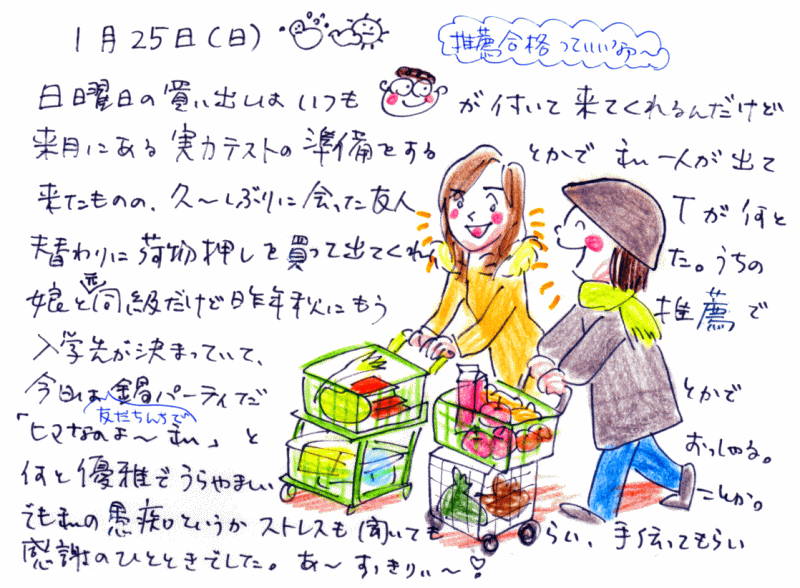 1月25日(日)
推薦合格っていいなァ～
日曜日の買い出しは いつも が付いて来てくれるんだけど
来月にある実力テストの準備をする とかで 私一人が出て
来たものの、久～しぶりに会った友人 Tが何と
替わりに荷物押しを買って出てくれ た。うちの
娘と同級だけど昨年秋にもう 推薦で
入学先が決まっていて、
今日は鍋パーティだ とかで
友だちんちで
「ヒマなのよ～私」と おっしゃる。
何と優雅でうらやましい ことか。
でも私の愚痴というか ストレスも聞いても らい、手伝ってもらい
感謝のひとときでした。あ～すっきりぃ～